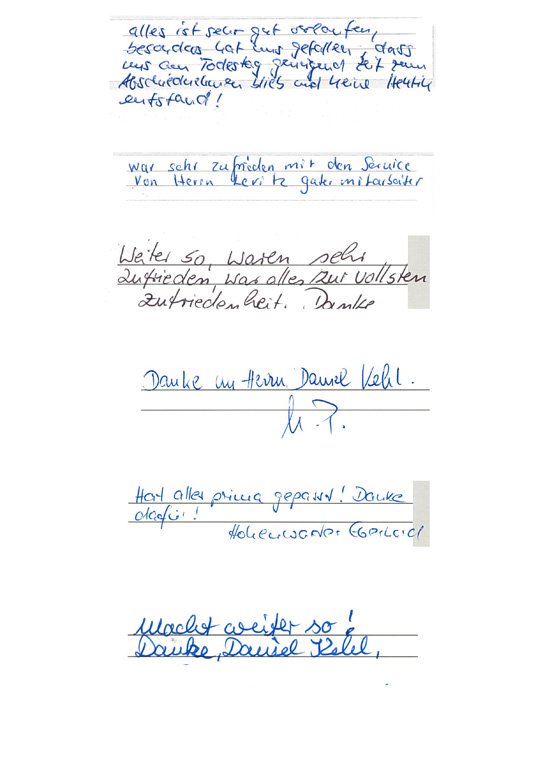 alles ist sehr gut verlaufen,
besonders hat uns gefallen, dass
uns am Todestag genügend Zeit zum
Abschiednehmen blieb und keine Hektik
entstand!
war sehr zufrieden mit den Service
von Herrn Levitz guter mitarbeiter
Weiter so, waren sehr
zufrieden, war alles zur vollsten
Zufriedenheit. Danke
Danke an Herrn Daniel Kehl.
Hat alles prima gepasst! Danke
dafür!
Macht weiter so!
Danke, Daniel Kehl,